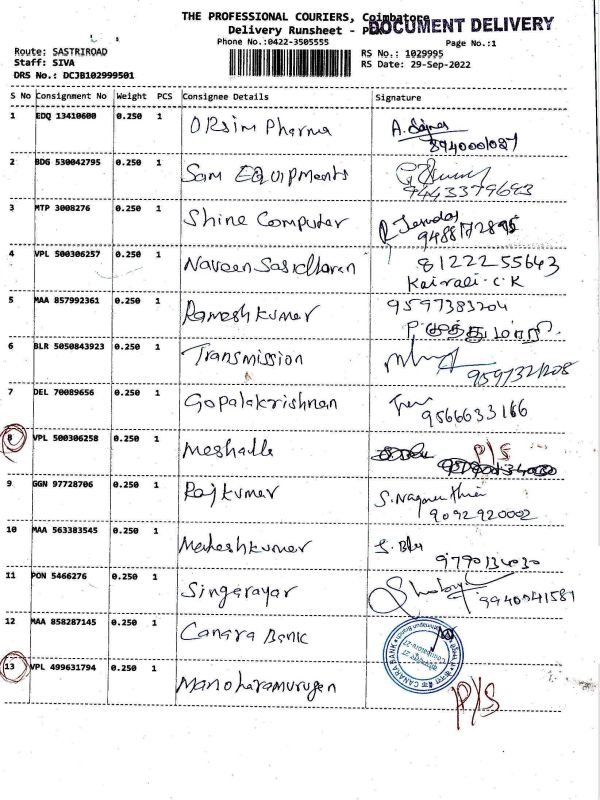 THE PROFESSIONAL COURIERS, Coimbatore
DOCUMENT DELIVERY
Delivery Runsheet -
Phone No.:0422-3505555
Page No.:1
Route: SASTRIROAD
Staff: SIVA
DRS No.: DCJB102999501
RS No.: 1029995
RS Date: 29-Sep-2022
S No Consignment No Weight PCS Consignee Details Signature
1 EDQ 13410600 0.250 1 ORSim Pharma
8940001087
2 BDG 530042795 0.250 1 Sam EQuipments
9443379693
3 MTP 3008276 0.250 1 Shine Computer
9488172895
4 VPL 500306257 0.250 1 Naveen Sasidharan 8122255643
Kairali-C.K
5 MAA 857992361 0.250 1 Rameshkumar 9597383204
P. முத்துமாரி
6 BLR 5050843923 0.250 1 Transmission
9597321208
7 DEL 70089656 0.250 1 Gopalakrishnan
9566633166
8 VPL 500306258 0.250 1 P/S
9 GGN 97728706 0.250 1 Rajkumar
9092920002
10 MAA 563383545 0.250 1 Maheshkumar
9790134030
11 PON 5466276 0.250 1 Singarayar
9940741581
12 MAA 858287145 0.250 1 Canara Bank
CANARA BANK
13 VPL 499631794 0.250 1 Manoharamurugan
P/S